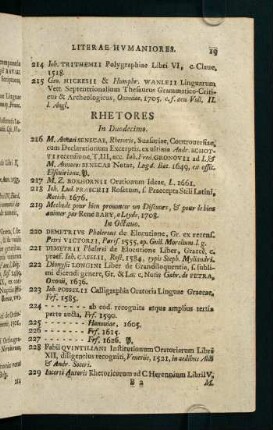 LITERAE HVMANIORES. 19
214 Joh. TRITHEMII Polygraphiae Libri VI, c. Clave,
1518.
215 Geo. HICKESII & Humphr. WANLEII Linguarum
Vett. Septentrionalium Thesaurus Grammatico-Criti-
cus & Archaeologicus, Oxoniae, 1705. c. f. aen Voll. II.
l. Angl.
RHETORES
In Duodecimo.
216 M. Annaei SENECAE, Rhetoris, Suasoriae, Controversiae,
cum Declamationum Excerptis, ex ultima Andr. SCHOT-
TI recensione, T. III, acc. Joh. Fred. GRONOVII ad L. &
M. Annaeos SENECAS Notae, Lugd. Bat. 1649, ex offic.
Elseviriana,
217 M. Z. BOXHORNII Orationum Ideae, L. 1661.
218 Joh. Lud. PRASCHII Rosetum, s. Praecepta Stili Latini,
Ratisb. 1676.
219 Methode pour bien prononcer un Discours, & pour le bien
animer par René BARY, a Leyde, 1708.
In Octavo.
220 DEMETRIUS Phalereus de Elocutione, Gr. ex recens.
Petri VICTORII, Paris. 1555. ap. Guil. Morelium l. g.
221 DEMETRII Phalerei de Elocutione Liber, Graece, c.
praef. Joh. CASELII, Rost. 1584. typis Steph. Myliandri.
222 Dionysii LONGINI Liber de Grandiloquentia, s. subli-
mi dicendi genere, Gr. & Lat. c. Notis Gabr. de PETRA,
Oxonii, 1636.
223 Joh. POSSELII Calligraphia Oratoria Linguae Graecae,
Frf. 1585.
224 - - ab eod. recognita atque amplius tertia
parte aucta, Frf. 1590.
225 - - Hanoviae, 1605.
226 - - Frf. 1615.
227 - - Frf. 1626.
228 Fabii QUINTILIANI Institutionum Oratoriarum Libri
XII, diligentius recogniti, Venetiis, 1521, in aedibus Aldi
& Andr. Soceri.
229 Incerti Autoris Rhetoricorum ad C Herennium Libri V,
B 2 M.